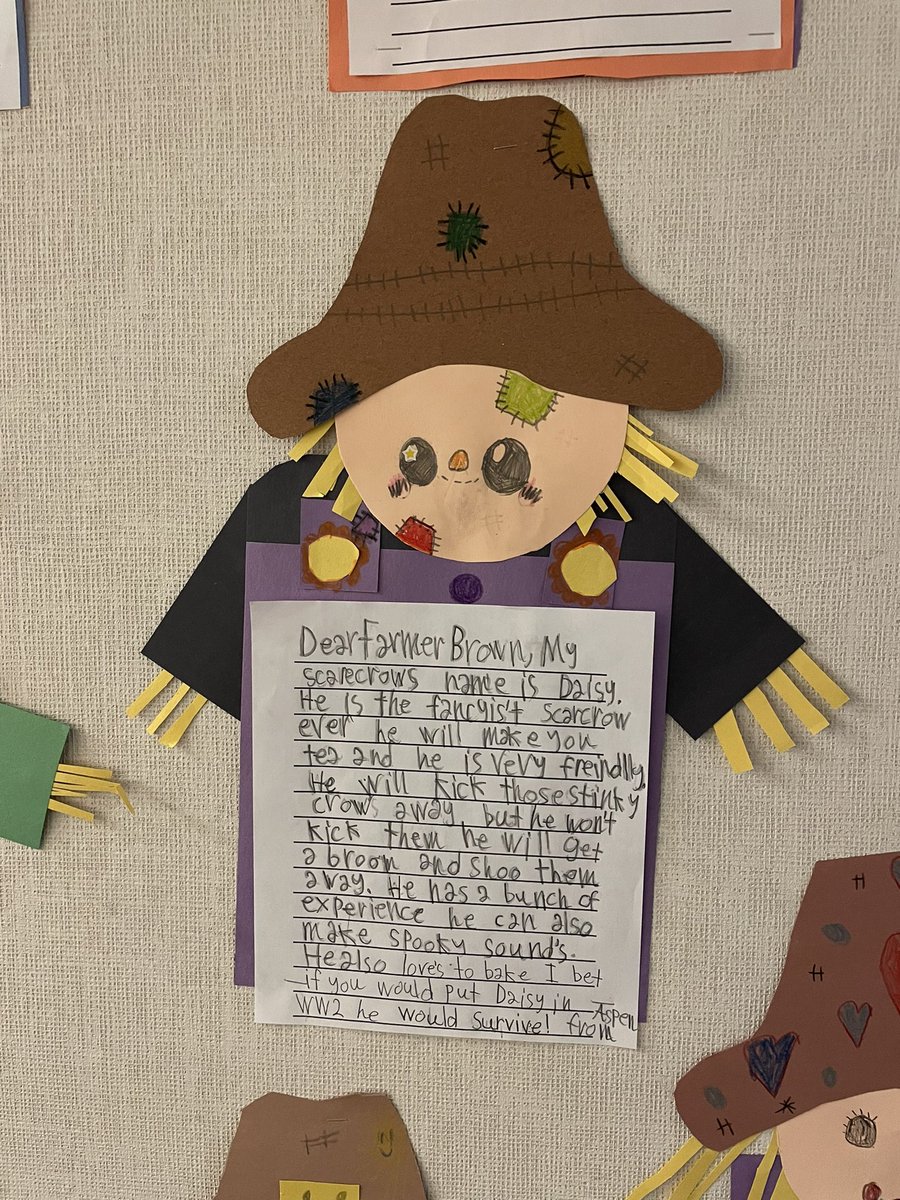 Dear Farmer Brown, My
scarecrows name is Daisy.
He is the fancyis't scarcrow
ever he will make you
tea and he is very freindlly.
He will kick those stinky
crows away, but he won't
kick them he will get
a broom and shoo them
away. He has a bunch of
experience he can also
make spooky sound's.
He also love's to bake I bet
if you would put Daisy in
WW2 he would survive! from
Aspen